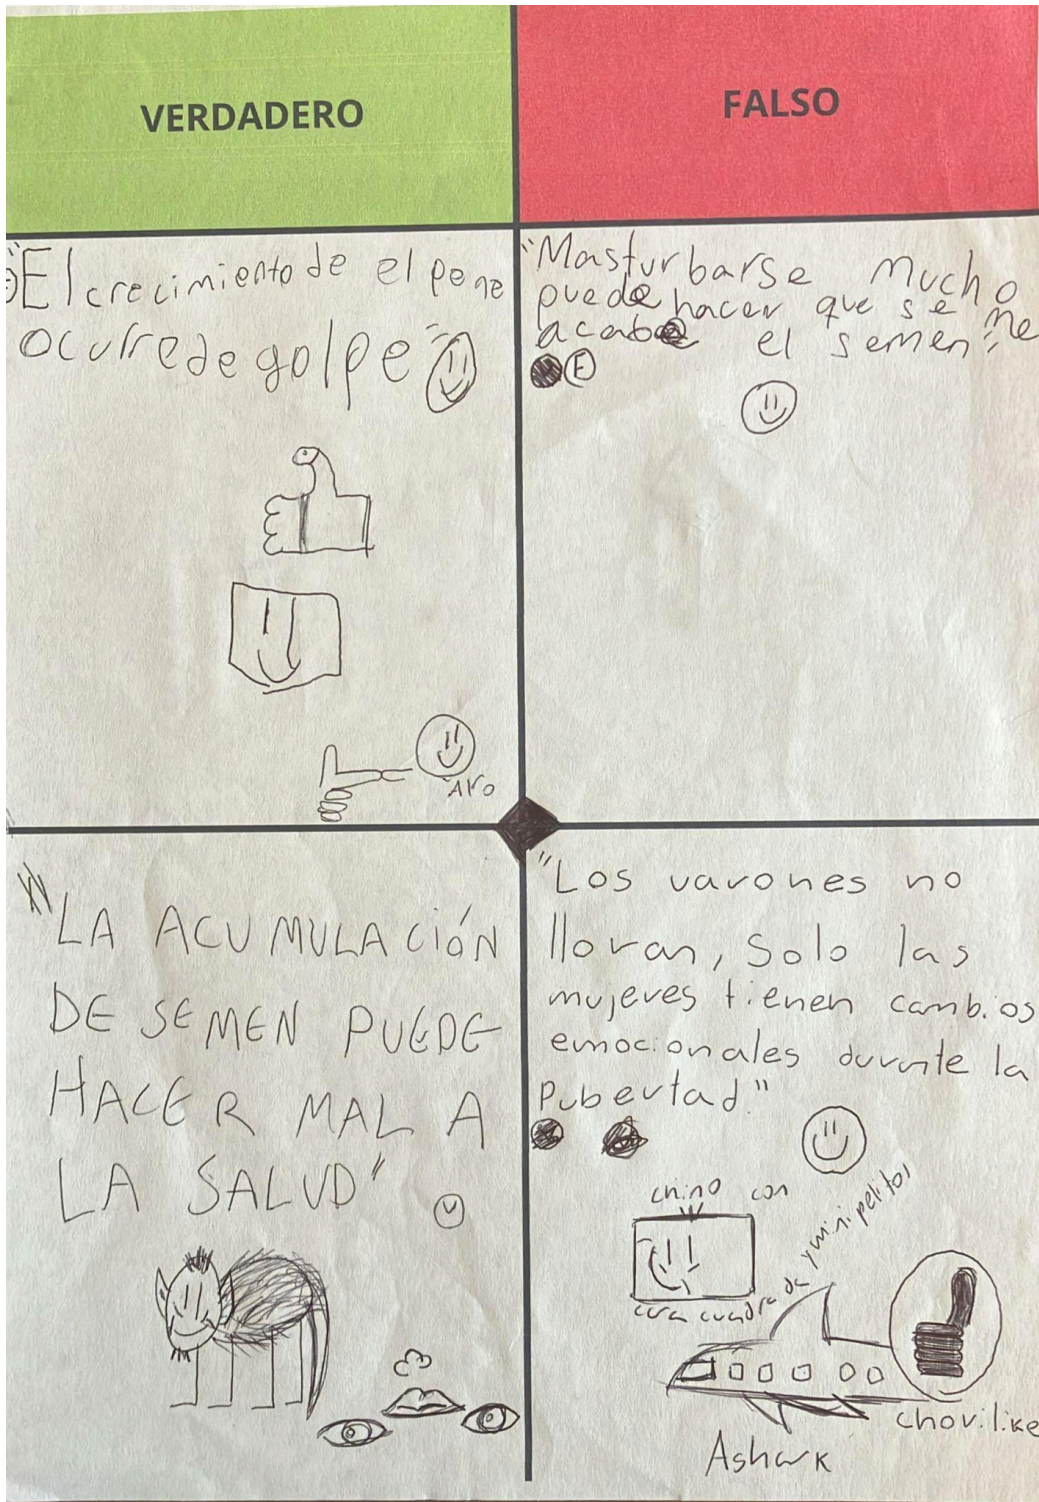 VERDADERO
FALSO
"El crecimiento de el pene
ocurre de golpe"
Aro
"Masturbarse mucho
puede hacer que se me
acabe el semen"
F
"LA ACUMULACIÓN
DE SEMEN PUEDE
HACER MAL A
LA SALUD"
V
"Los varones no
lloran, Solo las
mujeres tienen cambios
emocionales durante la
Pubertad"
chino con
cara cuadrada y mini pelitos
chorilike
Ashark